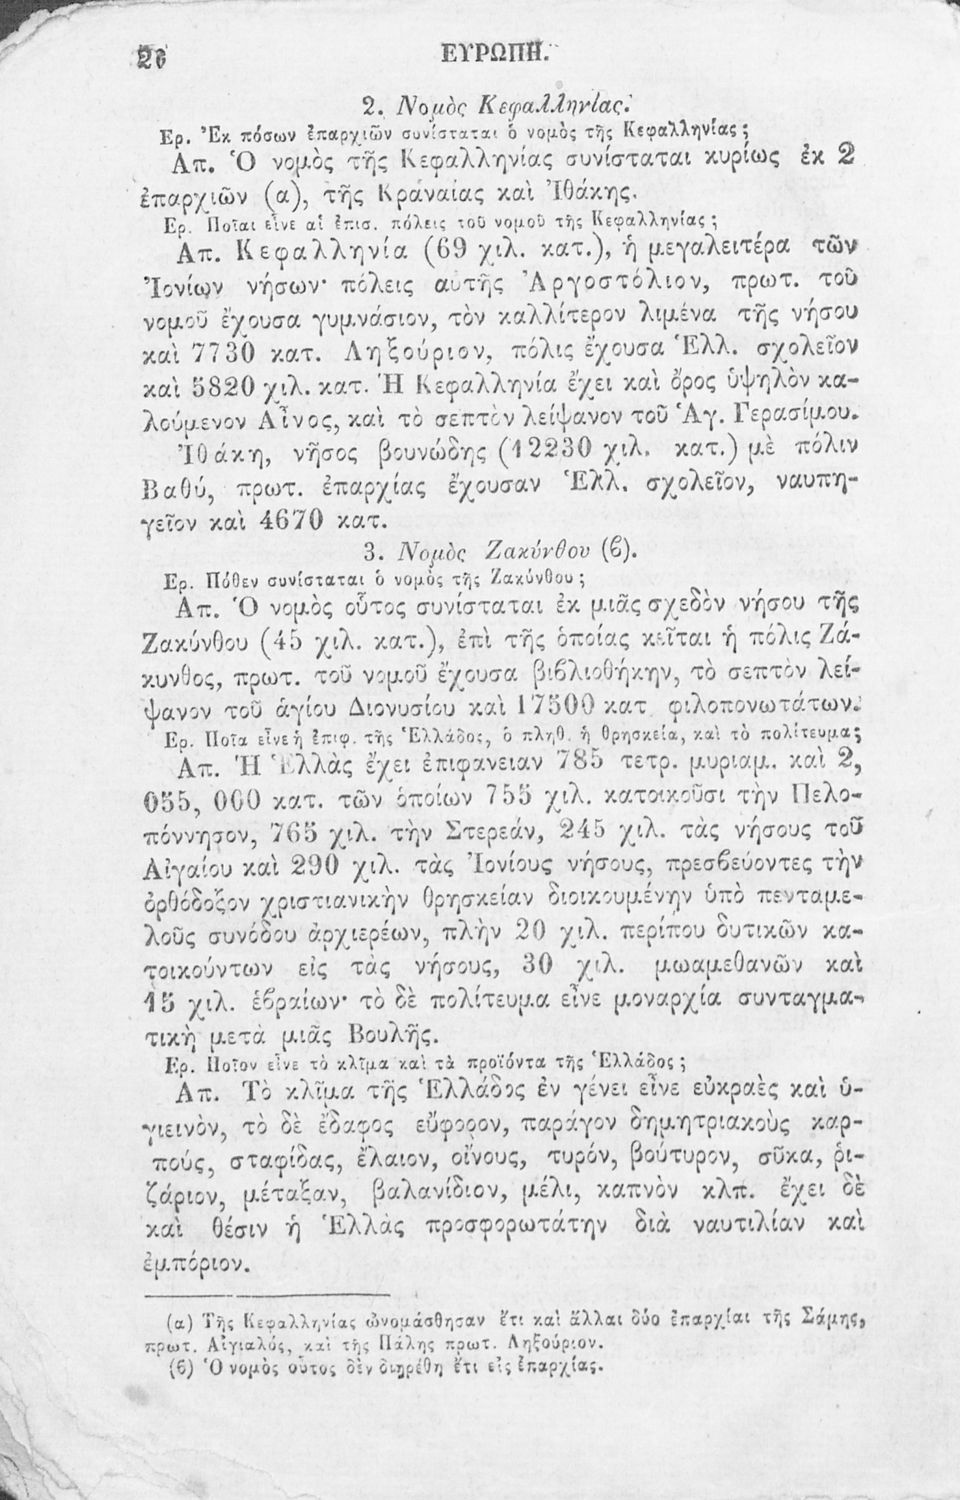 26 ΕΥΡΩΠΗ.
2. Νομὸς Κεφαλληνίας.
Ερ. Ἐκ πόσων ἐπαρχιῶν συνίσταται ὁ νομὸς τῆς Κεφαλληνίας ;
Απ. Ὁ νομὸς τῆς Κεφαλληνίας συνίσταται κυρίως ἐκ 2
ἐπαρχιῶν (α), τῆς Κραναίας καὶ Ἰθάκης.
Ερ. Ποῖαι εἶνε αἱ ἐπισ. πόλεις τοῦ νομοῦ τῆς Κεφαλληνίας ;
Απ. Κεφαλληνία (69 χιλ. κατ.), ἡ μεγαλειτέρα τῶν
Ἰονίων νήσων· πόλεις αὐτῆς Ἀργοστόλιον, πρωτ. τοῦ
νομοῦ ἔχουσα γυμνάσιον, τὸν καλλίτερον λιμένα τῆς νήσου
καὶ 7730 κατ. Ληξούριον, πόλις ἔχουσα Ἑλλ. σχολεῖον
καὶ 5820 χιλ. κατ. Ἡ Κεφαλληνία ἔχει καὶ ὄρος ὑψηλὸν κα-
λούμενον Αἶνος, καὶ τὸ σεπτὸν λείψανον τοῦ Ἁγ. Γερασίμου.
Ἰθάκη, νῆσος βουνώδης (12230 χιλ. κατ.) μὲ πόλιν
Βαθύ, πρωτ. ἐπαρχίας ἔχουσαν Ἑλλ. σχολεῖον, ναυπη-
γεῖον καὶ 4670 κατ.
3. Νομὸς Ζακύνθου (ϐ).
Ερ. Πόθεν συνίσταται ὁ νομὸς τῆς Ζακύνθου ;
Απ. Ὁ νομὸς οὗτος συνίσταται ἐκ μιᾶς σχεδὸν νήσου τῆς
Ζακύνθου (45 χιλ. κατ.), ἐπὶ τῆς ὁποίας κεῖται ἡ πόλις Ζά-
κυνθος, πρωτ. τοῦ νομοῦ ἔχουσα βιϐλιοθήκην, τὸ σεπτὸν λεί-
ψανον τοῦ ἁγίου Διονυσίου καὶ 17500 κατ. φιλοπονωτάτων.
Ερ. Ποῖα εἶνε ἡ ἐπιφ. τῆς Ἑλλάδος, ὁ πληθ. ἡ θρησκεία, καὶ τὸ πολίτευμα;
Απ. Ἡ Ἑλλὰς ἔχει ἐπιφανειαν 785 τετρ. μυριαμ. καὶ 2,
055, 000 κατ. τῶν ὁποίων 755 χιλ. κατοικοῦσι τὴν Πελο-
πόννησον, 765 χιλ. τὴν Στερεάν, 245 χιλ. τὰς νήσους τοῦ
Αἰγαίου καὶ 290 χιλ. τὰς Ἰονίους νήσους, πρεσϐεύοντες τὴν
ὀρθόδοξον χριστιανικὴν θρησκείαν διοικουμένην ὑπὸ πενταμε-
λοῦς συνόδου ἀρχιερέων, πλὴν 20 χιλ. περίπου δυτικῶν κα-
τοικούντων εἰς τὰς νήσους, 30 χιλ. μωαμεθανῶν καὶ
15 χιλ. ἑϐραίων· τὸ δὲ πολίτευμα εἶνε μοναρχία συνταγμα-
τικὴ μετὰ μιᾶς Βουλῆς.
Ερ. Ποῖον εἶνε τὸ κλῖμα καὶ τὰ προϊόντα τῆς Ἑλλάδος ;
Απ. Τὸ κλῖμα τῆς Ἑλλάδος ἐν γένει εἶνε εὐκραὲς καὶ ὑ-
γιεινὸν, τὸ δὲ ἔδαφος εὔφορον, παράγον δημητριακοὺς καρ-
πούς, σταφίδας, ἔλαιον, οἴνους, τυρόν, βούτυρον, σῦκα, ῥι-
ζάριον, μέταξαν, βαλανίδιον, μέλι, καπνὸν κλπ. ἔχει δὲ
καὶ θέσιν ἡ Ἑλλὰς προσφορωτάτην διὰ ναυτιλίαν καὶ
ἐμπόριον.
(α) Τῆς Κεφαλληνίας ὠνομάσθησαν ἔτι καὶ ἄλλαι δύο ἐπαρχίαι τῆς Σάμης,
πρωτ. Αἰγιαλός, καὶ τῆς Πάλης πρωτ. Ληξούριον.
(ϐ) Ὁ νομὸς οὗτος δὲν διῃρέθη ἔτι εἰς ἐπαρχίας.